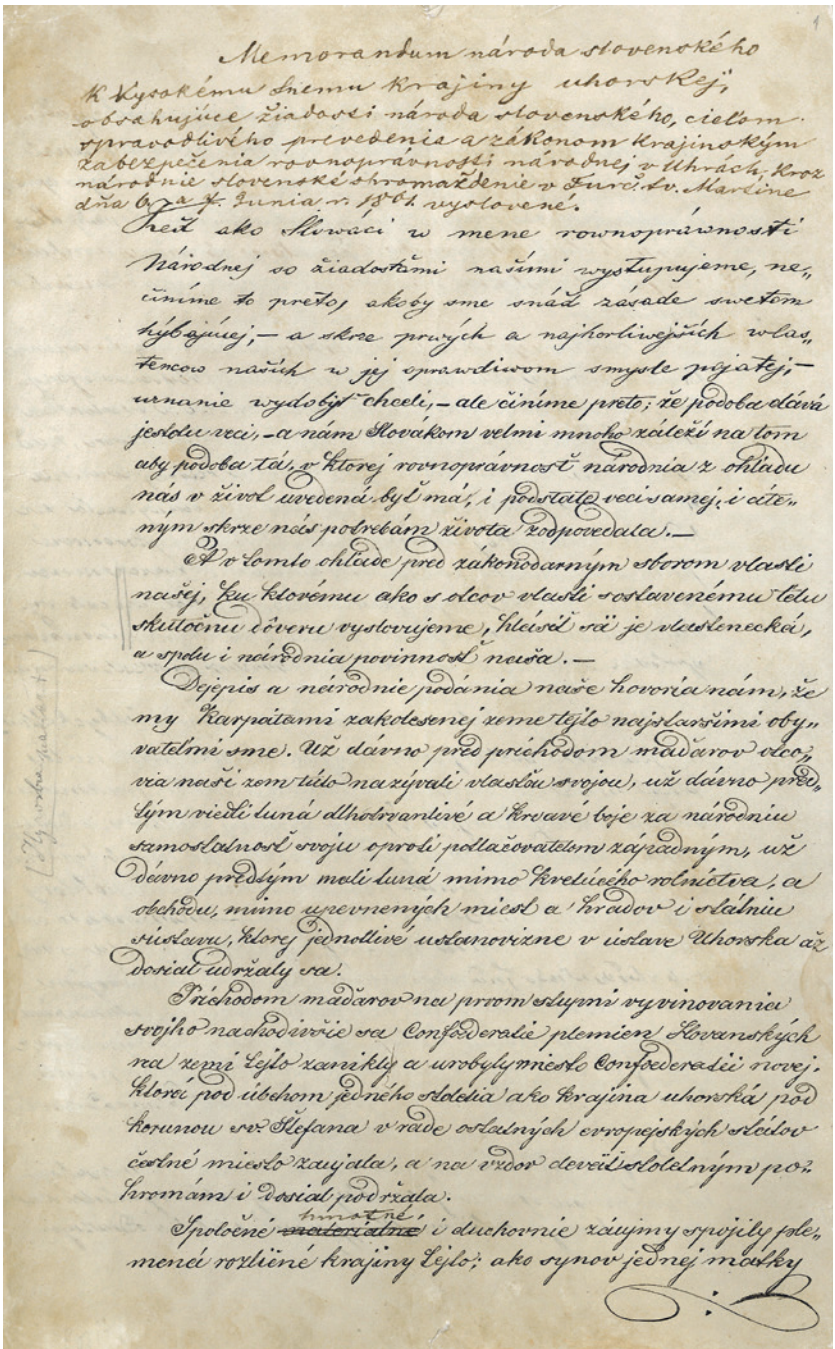 Memorandum národa slovenského
K Vysokému Snemu krajiny uhorskej,
obsahujúce žiadosti národa slovenského, cieľom
spravodlivého prevedenia a zákonom krajinským
zabezpečenia rovnoprávnosti národnej v Uhrách, kroz
národnie slovenské shromaždenie v Turč. Sv. Martine
dňa 6 a 7. Junia r. 1861. vyslovené.
Keď ako Slowáci w mene rownopráwnosti
Národnej so žiadosťámi našimi wystupujeme, ne-
činíme to preto, akoby sme snáď zásade swetom
hýbajúcej,– a skrze prwých a najhorliwejších wlas-
tencow našich w jej oprawdiwom smysle pojatej,–
uznanie wydobýť chceli,– ale činíme preto; že podoba dává
jestotu veci,– a nám Slovákom velmi mnoho záleží na tom
aby podoba tá, v ktorej rovnoprávnosť národnia z ohľadu
nás v život uvedená byť má, i podstate veci samej, i cíte-
ným skrze nás potrebám života zodpovedala.—
A v tomto ohľade pred zákonodarným sborom vlasti
našej, ku ktorému ako s otcov vlasti sostavenému telu
skutočnú dôveru vyslovujeme, hlásiť sä je vlastenecká,
a spolu i národnia povinnosť naša.—
Dejepis a národnie podánia naše hovoria nám, že
my Karpátami zakolesenej zeme tejto najstaršimi oby-
vateľmi sme. Už dávno pred príchodom maďarov otco-
via naši zem túto nazývali vlasťou svojou, už dávno pred-
tým viedli tuná dlhotrvanlivé a krvavé boje za národniu
samostatnosť svoju oproti potlačovatelom západným, už
dávno predtým mali tuná mimo kvetúcého rolníctva, a
obchodu, mimo upevnených miest a hradov i státniu
sústavu, ktorej jednotlivé ustanovizne v ústave Uhorska až
dosial udržaly sa.
Príchodom maďarov na prvom stupni vyvinovania
svojho nachodivšie sa Confoederatie plemien Slovanských
na zemi tejto zanikly a urobyly miesto Confoederatii novej.
ktorá pod úbehom jedného stoletia ako krajina uhorská pod
korunou sv. Štefana v rade ostatných evropejských státov
čestné miesto zaujala, a na vzdor deväťstoletným po-
hromám i dosial podržala.
hmotné
Spoločné materialné i duchovnie záujmy spojily ple-
mená rozličné krajiny tejto; ako synov jednej matky